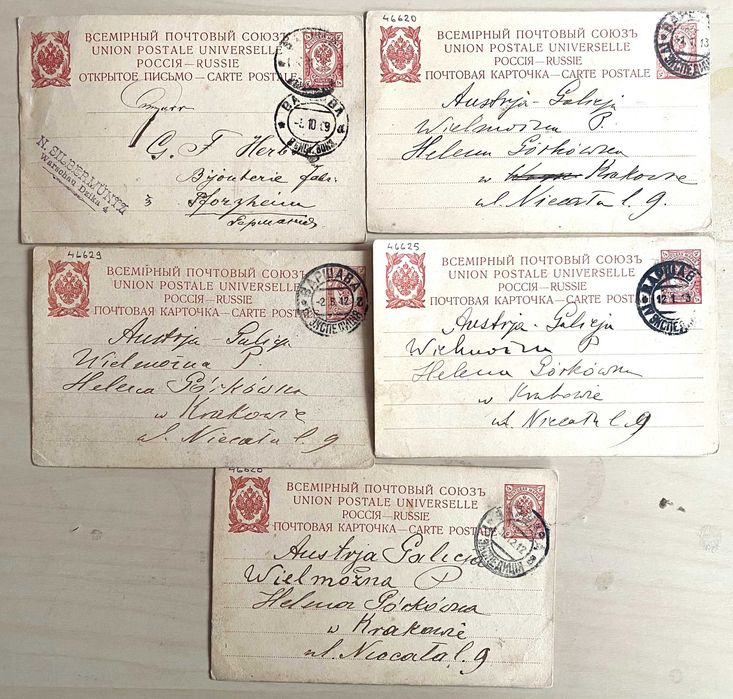 ВСЕМІРНЫЙ ПОЧТОВЫЙ СОЮЗЪ
UNION POSTALE UNIVERSELLE
РОССІЯ—RUSSIE
ОТКРЫТОЕ ПИСЬМО—CARTE POSTALE
ВАРШАВА
-3.10.09
G. F. Herb
Bijouterie Fabr.
Pforzheim
Германія
N. SILBERMÜNTZ
Warschau Dzika 4
46620
ВСЕМІРНЫЙ ПОЧТОВЫЙ СОЮЗЪ
UNION POSTALE UNIVERSELLE
РОССІЯ—RUSSIE
ПОЧТОВАЯ КАРТОЧКА—CARTE POSTALE
ЭКСПЕДИЦ
Austrja-Galicja
Wielmożna P.
Helena Górkówna
w Krakowie
ul. Niecała l. 9.
46629
ВСЕМІРНЫЙ ПОЧТОВЫЙ СОЮЗЪ
UNION POSTALE UNIVERSELLE
РОССІЯ—RUSSIE
ПОЧТОВАЯ КАРТОЧКА—CARTE POSTALE
ВАРШАВА
-2.8.12
ЭКСПЕДИЦІЯ
Austrja-Galicja
Wielmożna P.
Helena Górkówna
w Krakowie
ul. Niecała l. 9
46625
ВСЕМІРНЫЙ ПОЧТОВЫЙ СОЮЗЪ
UNION POSTALE UNIVERSELLE
РОССІЯ—RUSSIE
ПОЧТОВАЯ КАРТОЧКА—CARTE POSTALE
ВАРШАВ
IV ЭКСПЕД
Austrja-Galicja
Wielmożna P.
Helena Górkówna
w Krakowie
ul. Niecała l. 9
ВСЕМІРНЫЙ ПОЧТОВЫЙ СОЮЗЪ
UNION POSTALE UNIVERSELLE
РОССІЯ—RUSSIE
ПОЧТОВАЯ КАРТОЧКА—CARTE POSTALE
ЭКСПЕДИЦІЯ
Austrja Galicja
Wielmożna P
Helena Górkówna
w Krakowie
ul. Niecała l. 9